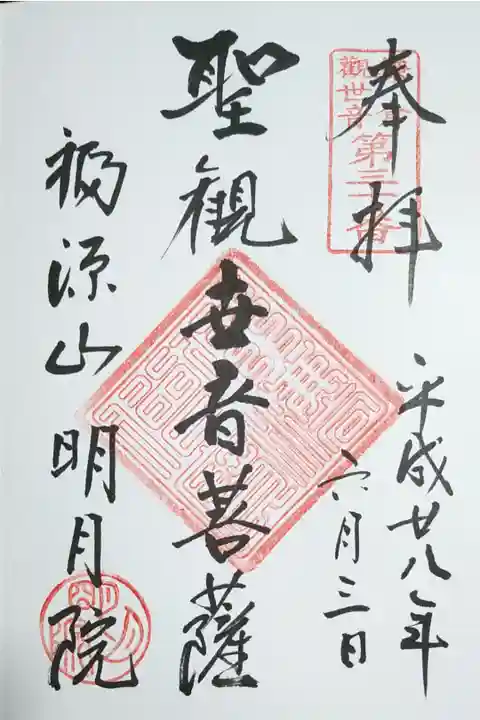 奉拝
平成廿八年
六月三日
觀世音第三十番
聖観世音菩薩
福源山明月院